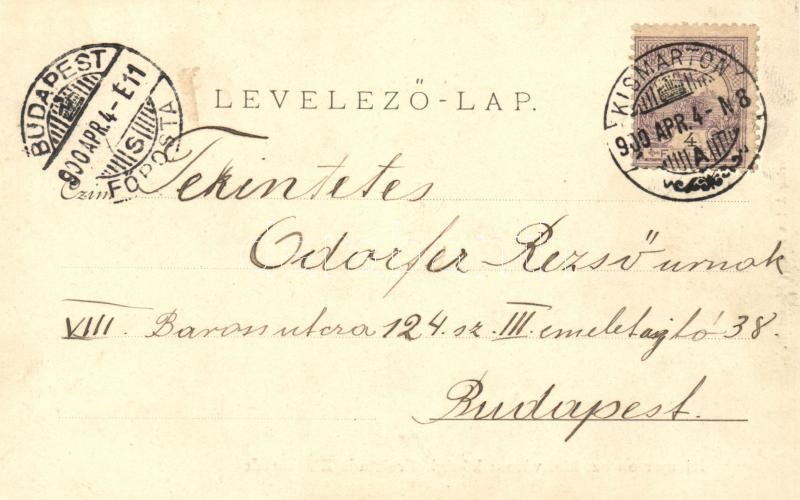 BUDAPEST
900 APR. 4 - E 11
S
FŐPOSTA
LEVELEZŐ-LAP.
KISMARTON
900 APR. 4 - N 8
4
A
Czim Tekintetes
Odorfer Rezső urnak
VIII. Baross utcza 124. sz. III. emelet ajtó 38.
Budapest.